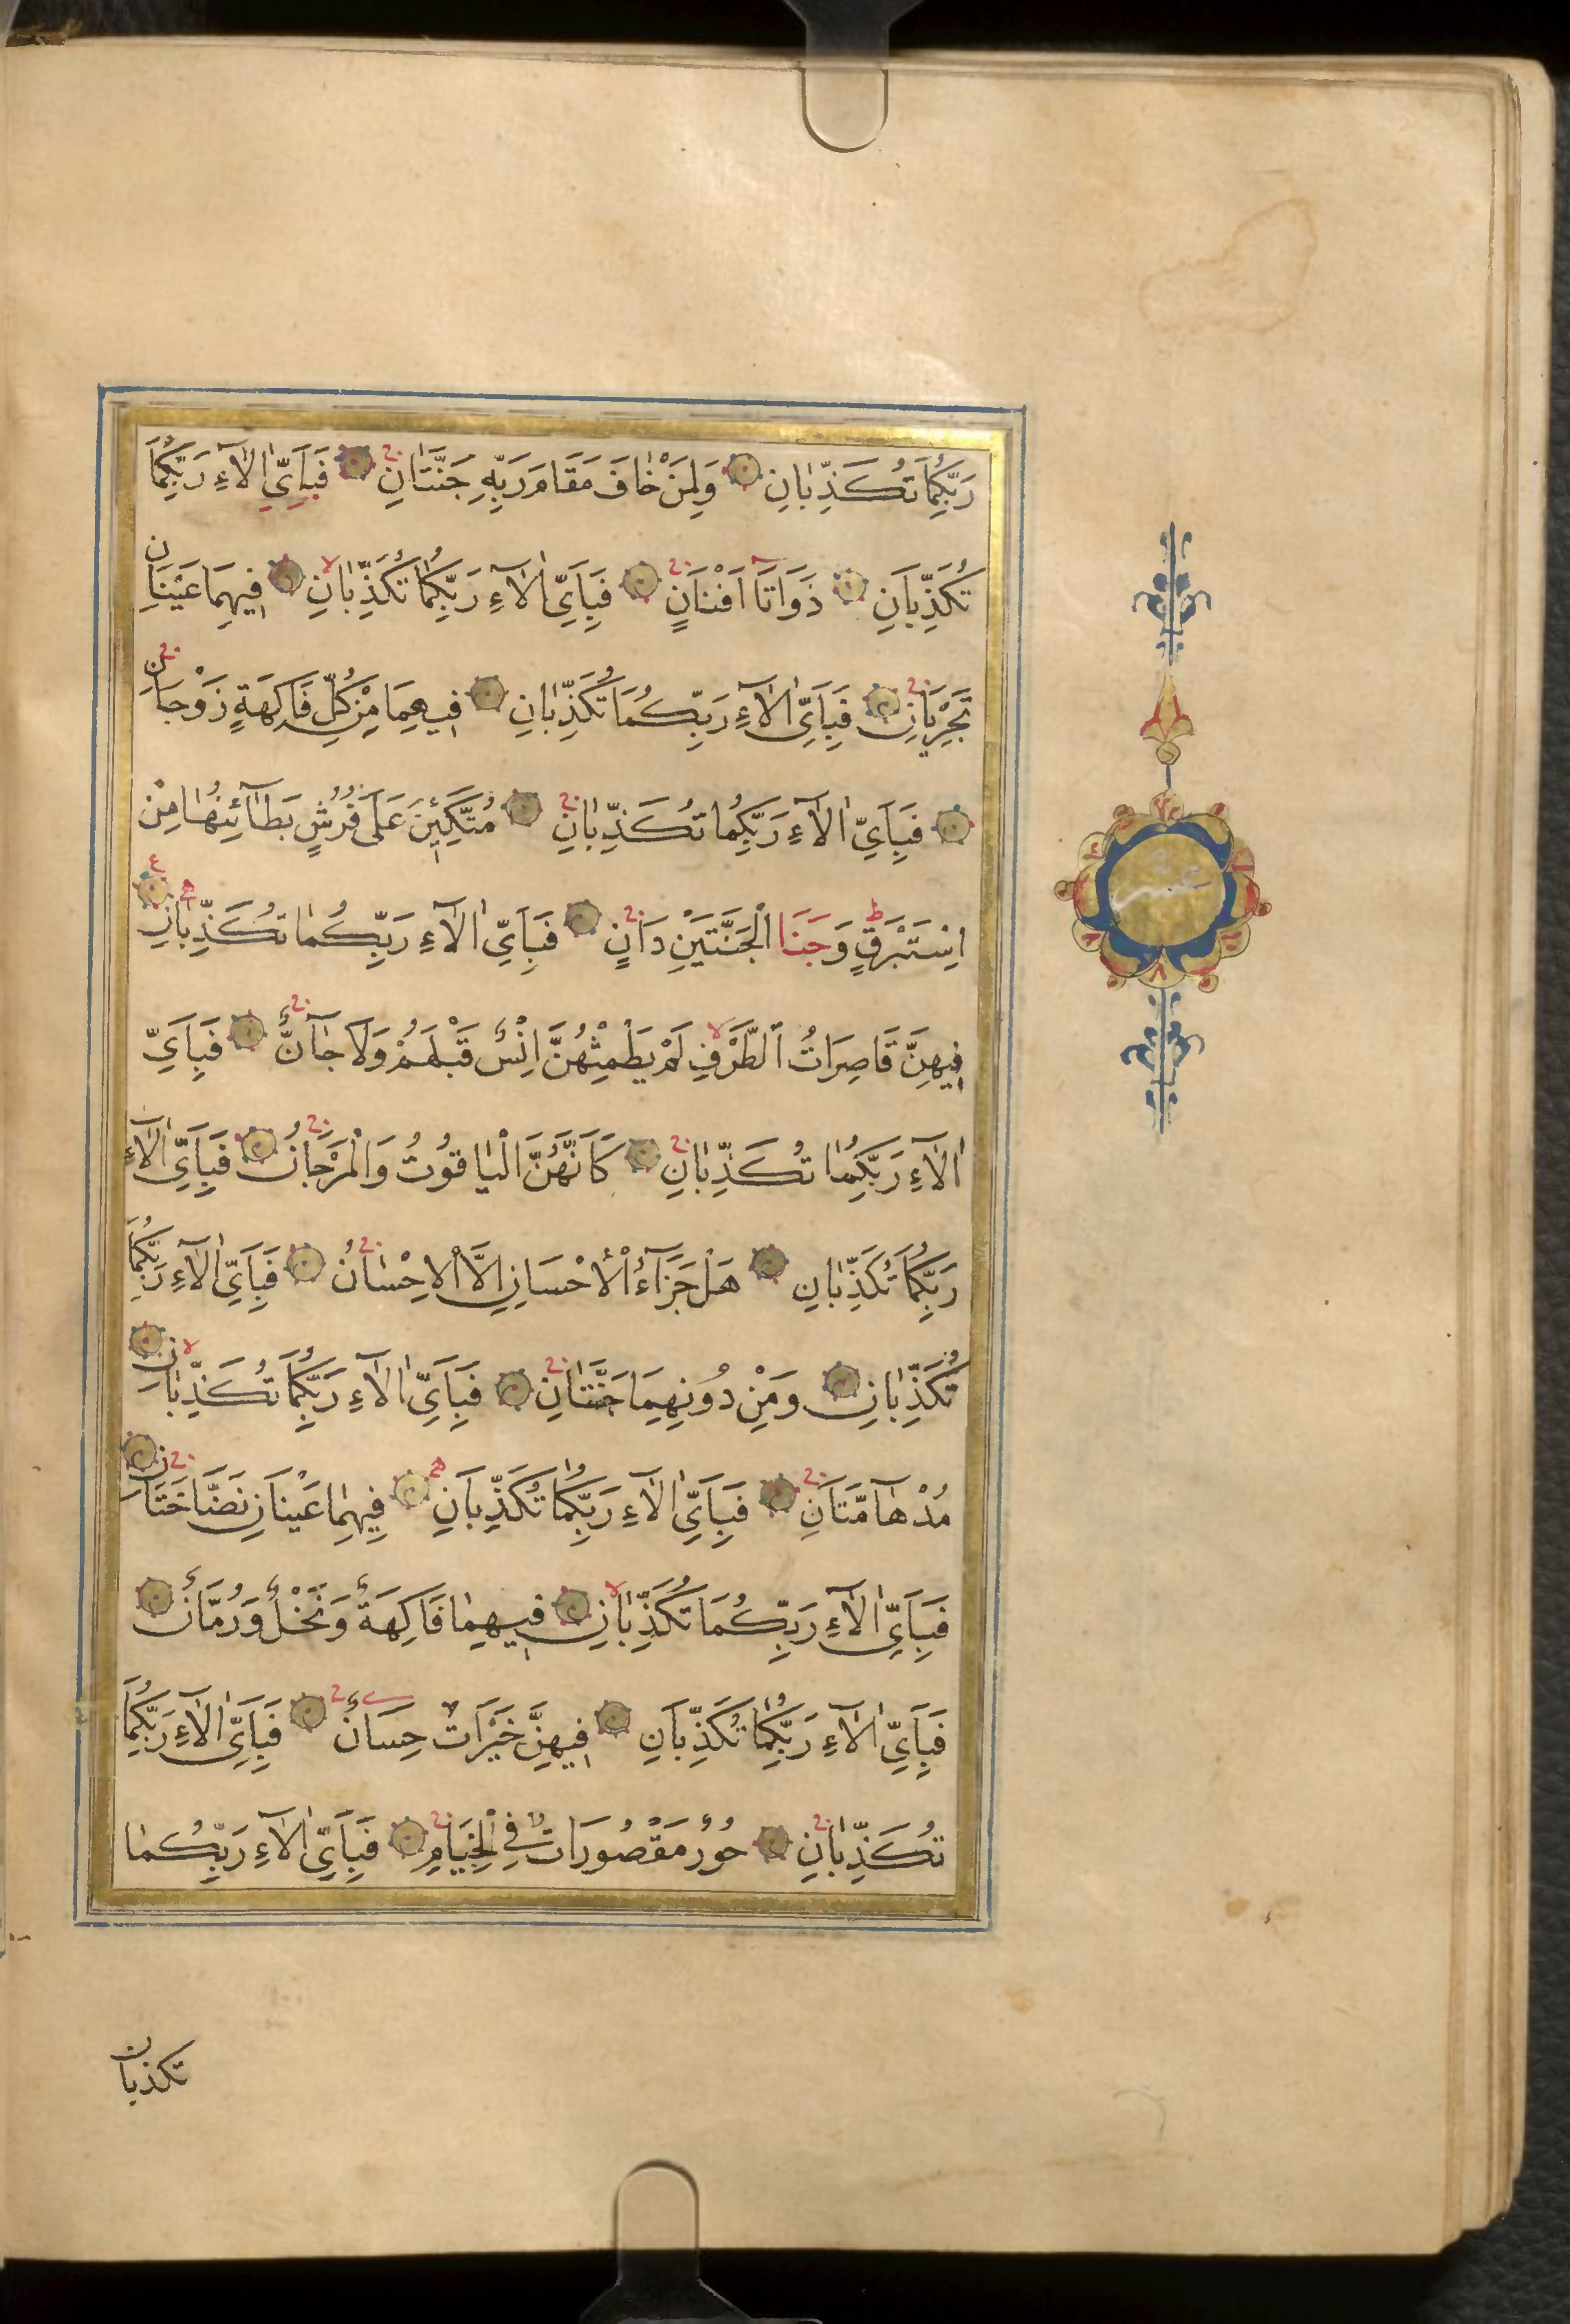 رَبِّكُمَا تُكَذِّبَانِ وَلِمَنْ خَافَ مَقَامَ رَبِّهِ جَنَّتَانِ فَبِاَيِّ اٰلَاۤءِ رَبِّكُمَا
تُكَذِّبَانِ ذَوَاتَا اَفْنَانٍ فَبِاَيِّ اٰلَاۤءِ رَبِّكُمَا تُكَذِّبَانِ فِيهِمَا عَيْنَانِ
تَجْرِيَانِ فَبِاَيِّ اٰلَاۤءِ رَبِّكُمَا تُكَذِّبَانِ فِيهِمَا مِنْ كُلِّ فَاكِهَةٍ زَوْجَانِ
فَبِاَيِّ اٰلَاۤءِ رَبِّكُمَا تُكَذِّبَانِ مُتَّكِئِينَ عَلَى فُرُشٍ بَطَاۤئِنُهَا مِنْ
اِسْتَبْرَقٍ وَجَنَا الْجَنَّتَيْنِ دَانٍ فَبِاَيِّ اٰلَاۤءِ رَبِّكُمَا تُكَذِّبَانِ
فِيهِنَّ قَاصِرَاتُ الطَّرْفِ لَمْ يَطْمِثْهُنَّ اِنْسٌ قَبْلَهُمْ وَلَا جَاۤنٌّ فَبِاَيِّ
اٰلَاۤءِ رَبِّكُمَا تُكَذِّبَانِ كَاَنَّهُنَّ الْيَاقُوتُ وَالْمَرْجَانُ فَبِاَيِّ اٰلَاۤءِ
رَبِّكُمَا تُكَذِّبَانِ هَلْ جَزَاۤءُ الْاِحْسَانِ اِلَّا الْاِحْسَانُ فَبِاَيِّ اٰلَاۤءِ رَبِّكُمَا
تُكَذِّبَانِ وَمِنْ دُونِهِمَا جَنَّتَانِ فَبِاَيِّ اٰلَاۤءِ رَبِّكُمَا تُكَذِّبَانِ
مُدْهَاۤمَّتَانِ فَبِاَيِّ اٰلَاۤءِ رَبِّكُمَا تُكَذِّبَانِ فِيهِمَا عَيْنَانِ نَضَّاخَتَانِ
فَبِاَيِّ اٰلَاۤءِ رَبِّكُمَا تُكَذِّبَانِ فِيهِمَا فَاكِهَةٌ وَنَخْلٌ وَرُمَّانٌ
فَبِاَيِّ اٰلَاۤءِ رَبِّكُمَا تُكَذِّبَانِ فِيهِنَّ خَيْرَاتٌ حِسَانٌ فَبِاَيِّ اٰلَاۤءِ رَبِّكُمَا
تُكَذِّبَانِ حُورٌ مَقْصُورَاتٌ فِي الْخِيَامِ فَبِاَيِّ اٰلَاۤءِ رَبِّكُمَا
تكذبان